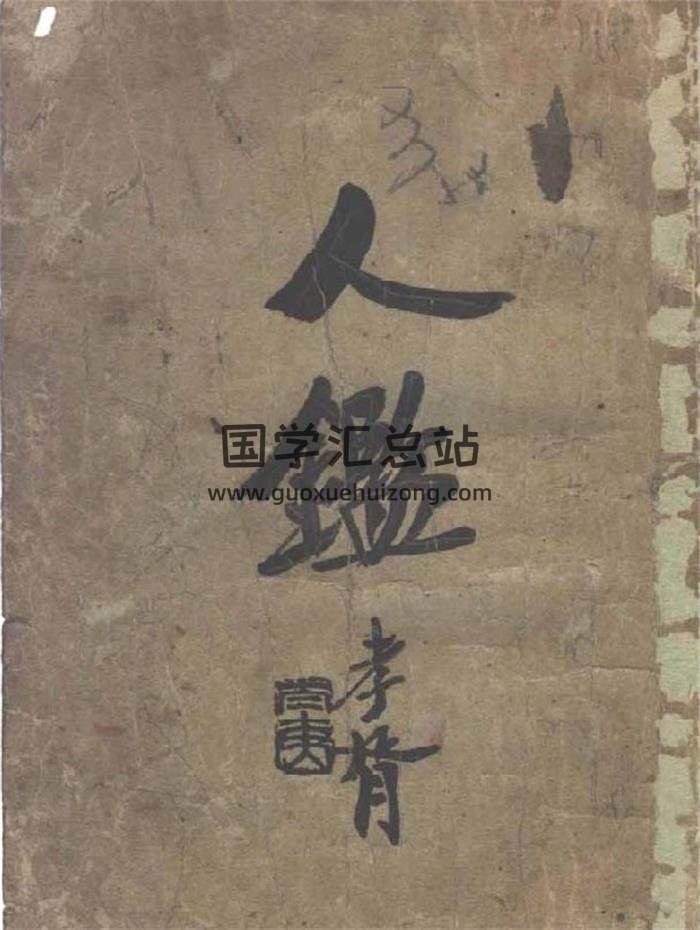 人
鑑
国学汇总站
www.guoxuehuizong.com
孝胥